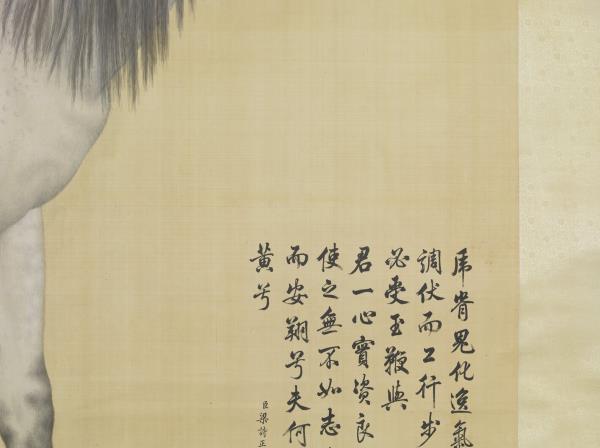 虎脊鬼化逸氣
調伏而工行步
必受玉鞭與
君一心實資良
使之無不如志
而安翔兮夫何
黃兮
臣梁詩正